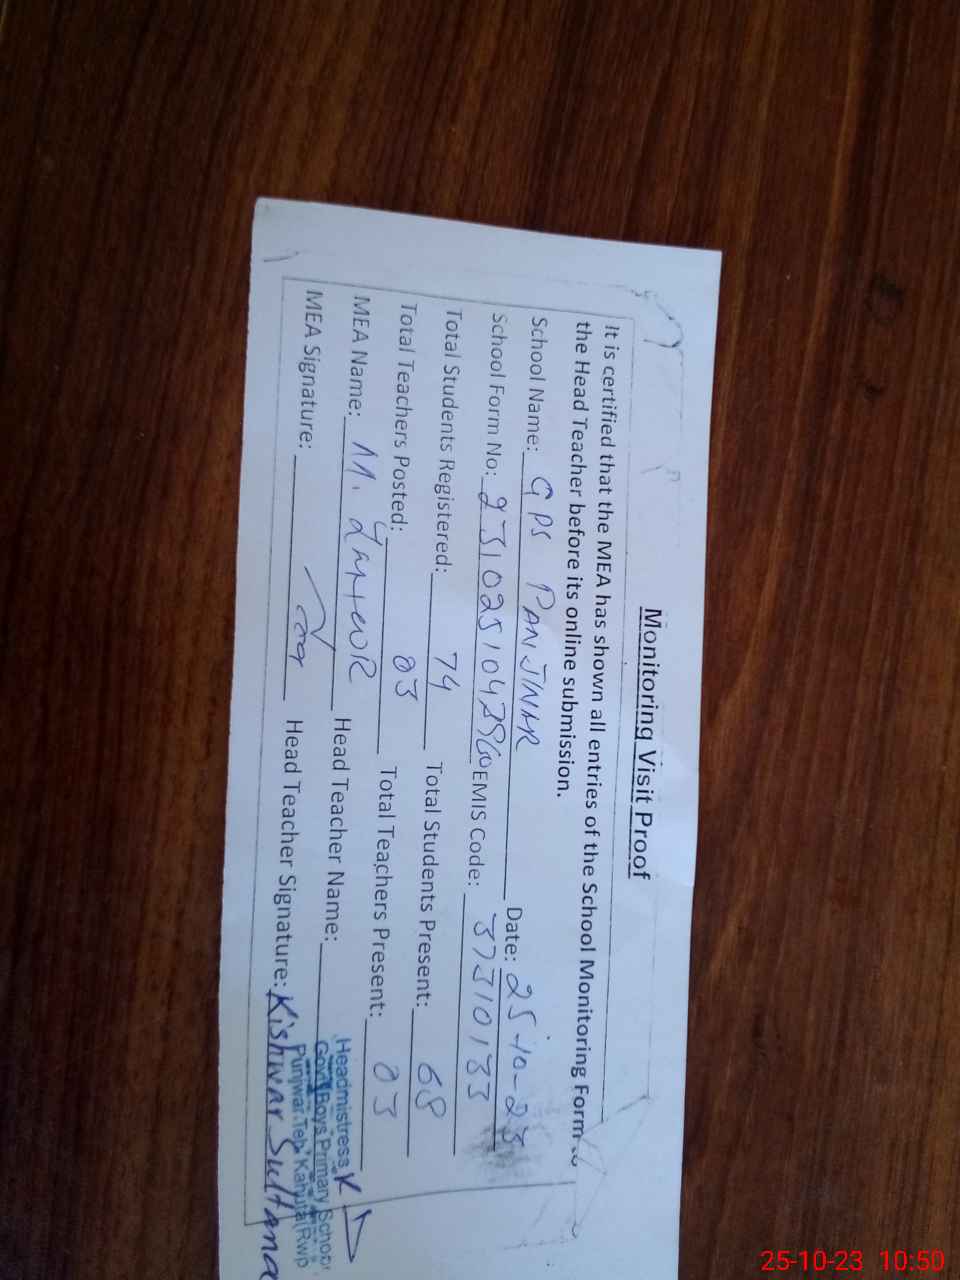 Monitoring Visit Proof
It is certified that the MEA has shown all entries of the School Monitoring Form to
the Head Teacher before its online submission.
School Name: GPS PANJWAR Date: 25-10-23
School Form No: EMIS Code: 37310133
Total Students Registered: 74 Total Students Present: 68
Total Teachers Posted: 03 Total Teachers Present: 03
MEA Name: M. Head Teacher Name:
MEA Signature: Head Teacher Signature: Kishwar Sultana
Headmistress
Govt Boys Primary School
Punjwar.Teh Kahuta(Rwp
25-10-23 10:50